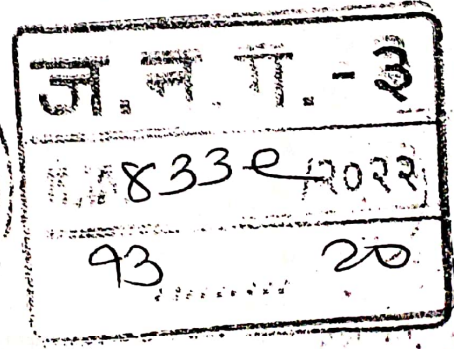 ज.न.ग.-३
४३३९/२०२२
१३ २०